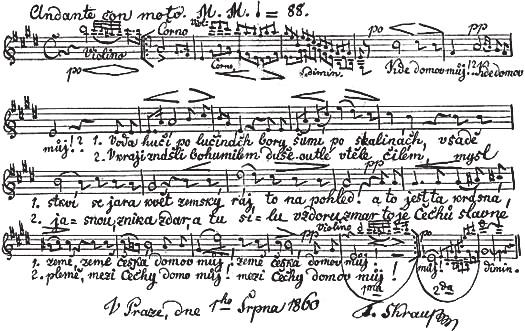 Andante con moto. M. M. ♩ = 88.
Viol. Corno po pp
Violino
po Corno dimin. Kde domov můj! ? Kde domov
můj! ? 1. Voda hučí po lučinách bory šumí po skalinách, v sadě
2. V kraji znáš-li bohumilém duše outlé v těle čilém mysl
pp
1. stkví se jara květ zemský ráj to na pohled! a to jest ta krásná,
2. ja= snou, znik a zdar, a tu sí= lu vzdoru zmar to je Čechů slavné
pp Violino pp
1. země, země česká domov můj! země česká, domov můj můj! dimin.
2. plémě, mezi Čechy domov můj! mezi Čechy domov můj!
1ma 2da
V Praze, dne 1ho Srpna 1860 F. Škroup